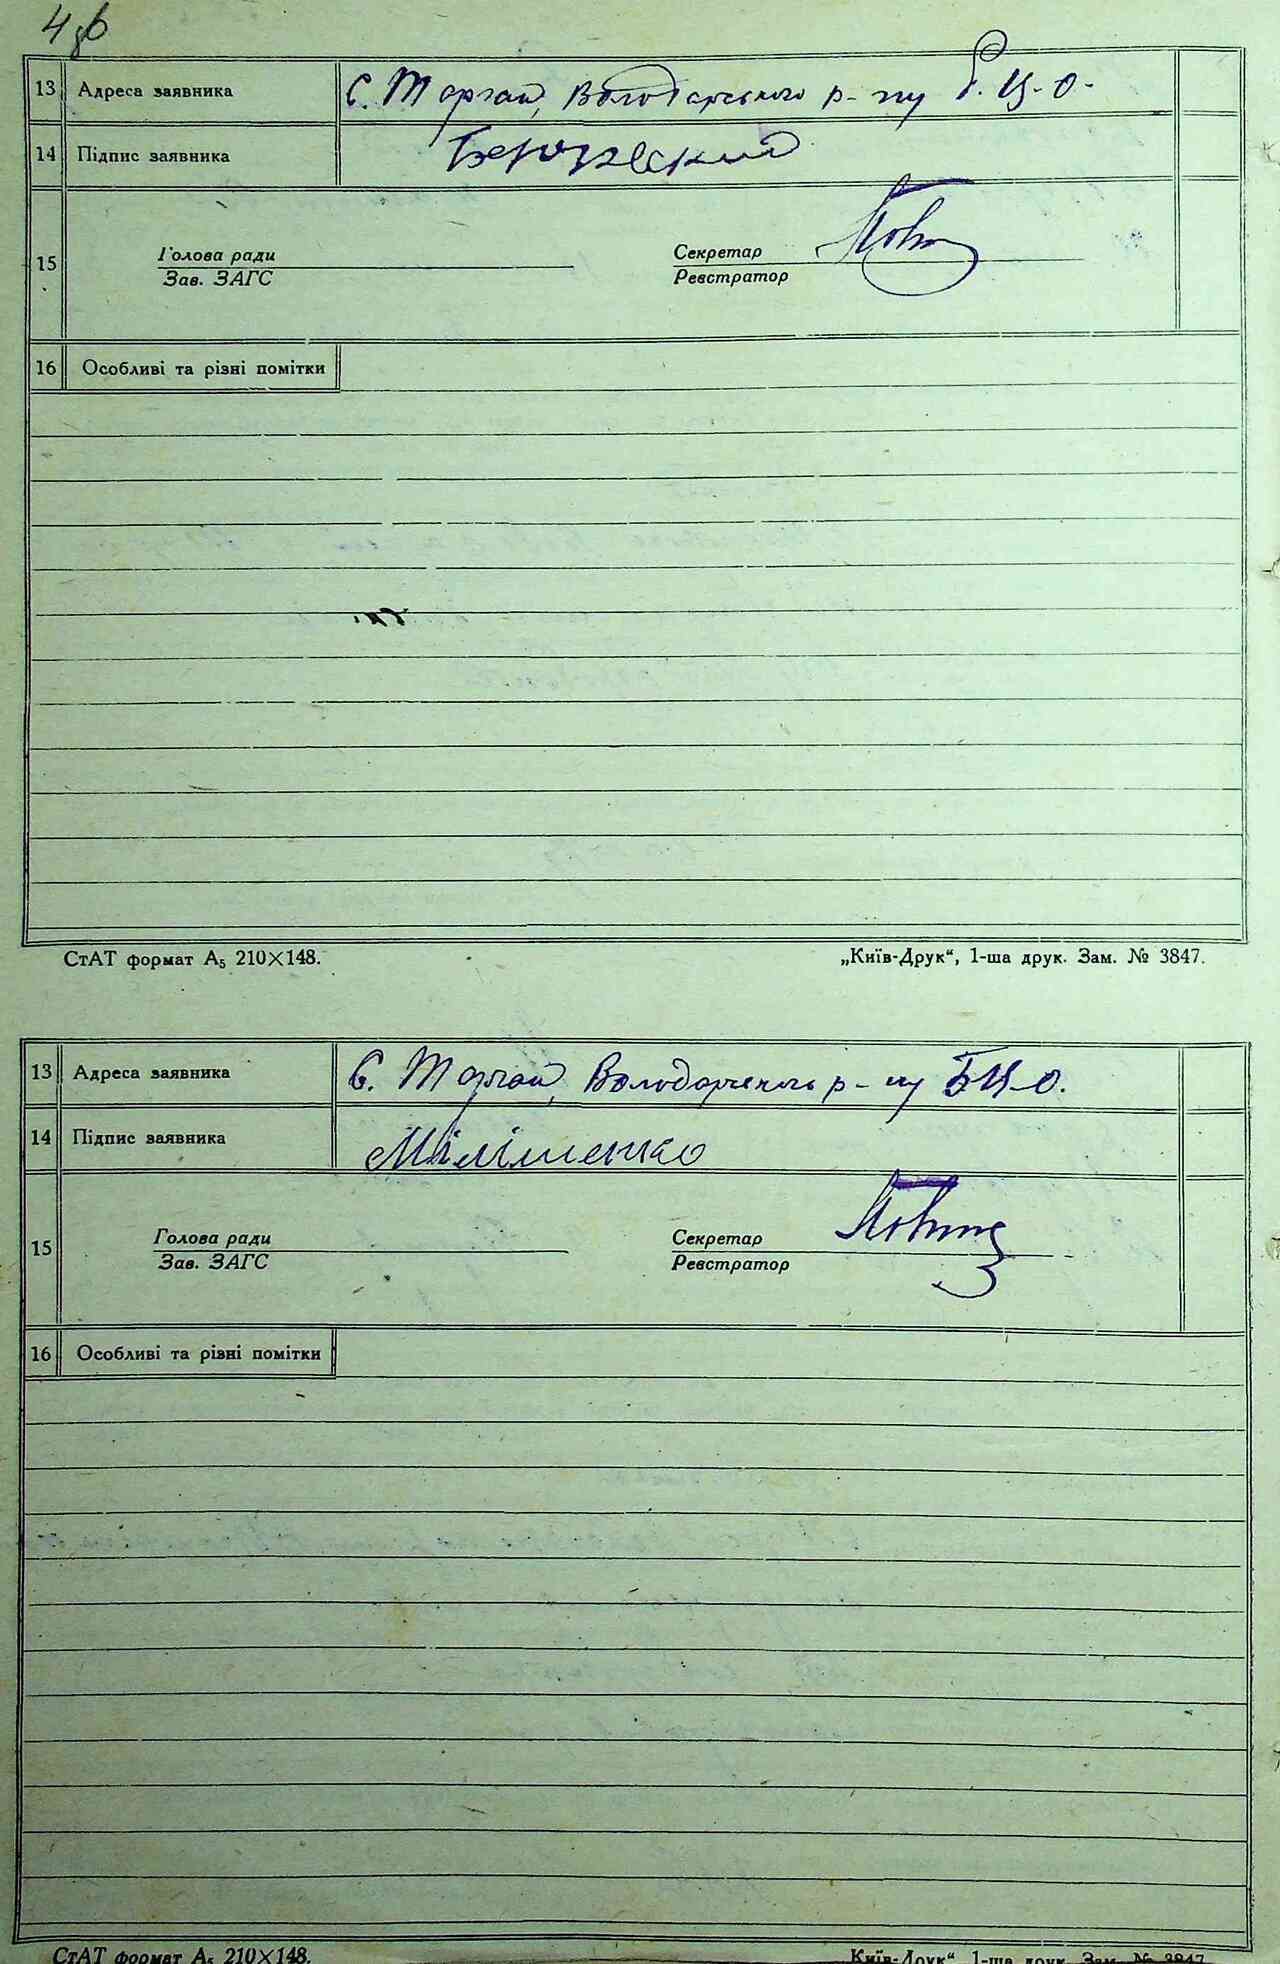 4 зв
13 Адреса заявника с. Торган, Володарського р-ну Б.Ц.О.
14 Підпис заявника
15 Голова ради Секретар
Зав. ЗАГС Реєстратор
16 Особливі та різні помітки
СтАТ формат А₅ 210×148. „Київ-Друк“, 1-ша друк. Зам. № 3847.
13 Адреса заявника с. Торган, Володарського р-ну БЦ.О.
14 Підпис заявника Мілішенко
15 Голова ради Секретар
Зав. ЗАГС Реєстратор
16 Особливі та різні помітки
СтАТ формат А₅ 210×148. Київ-Друк“, 1-ша друк. Зам. № 3847